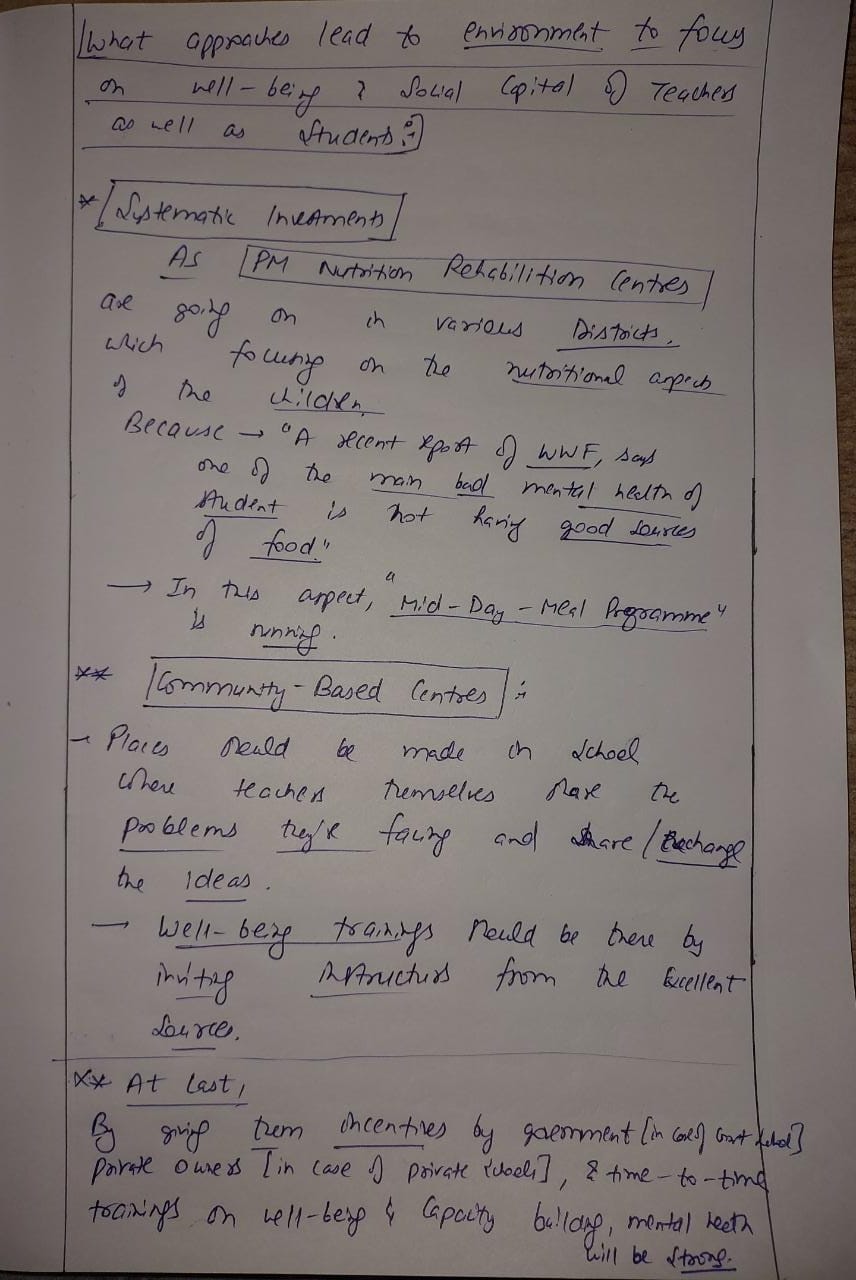 What approaches lead to environment to focus
on well-being & Social Capital of Teachers
as well as Students :-
* Systematic Investments
As PM Nutrition Rehabilition Centres
are going on in various Districts,
which focusing on the nutritional aspects
of the children.
Because → "A recent report of WWF, says
one of the main bad mental health of
student is not having good sources
of food."
→ In this aspect, "Mid-Day-Meal Programme"
is running.
** Community-Based Centres :-
- Places should be made in School
where teachers themselves share the
problems they're facing and share / Exchange
the ideas.
→ Well-being trainings should be there by
inviting instructors from the Excellent
Sources.
** At last,
By giving them incentives by government [in case of Govt School]
private owners [in case of private schools], & time-to-time
trainings on well-being & Capacity building, mental health
will be strong.